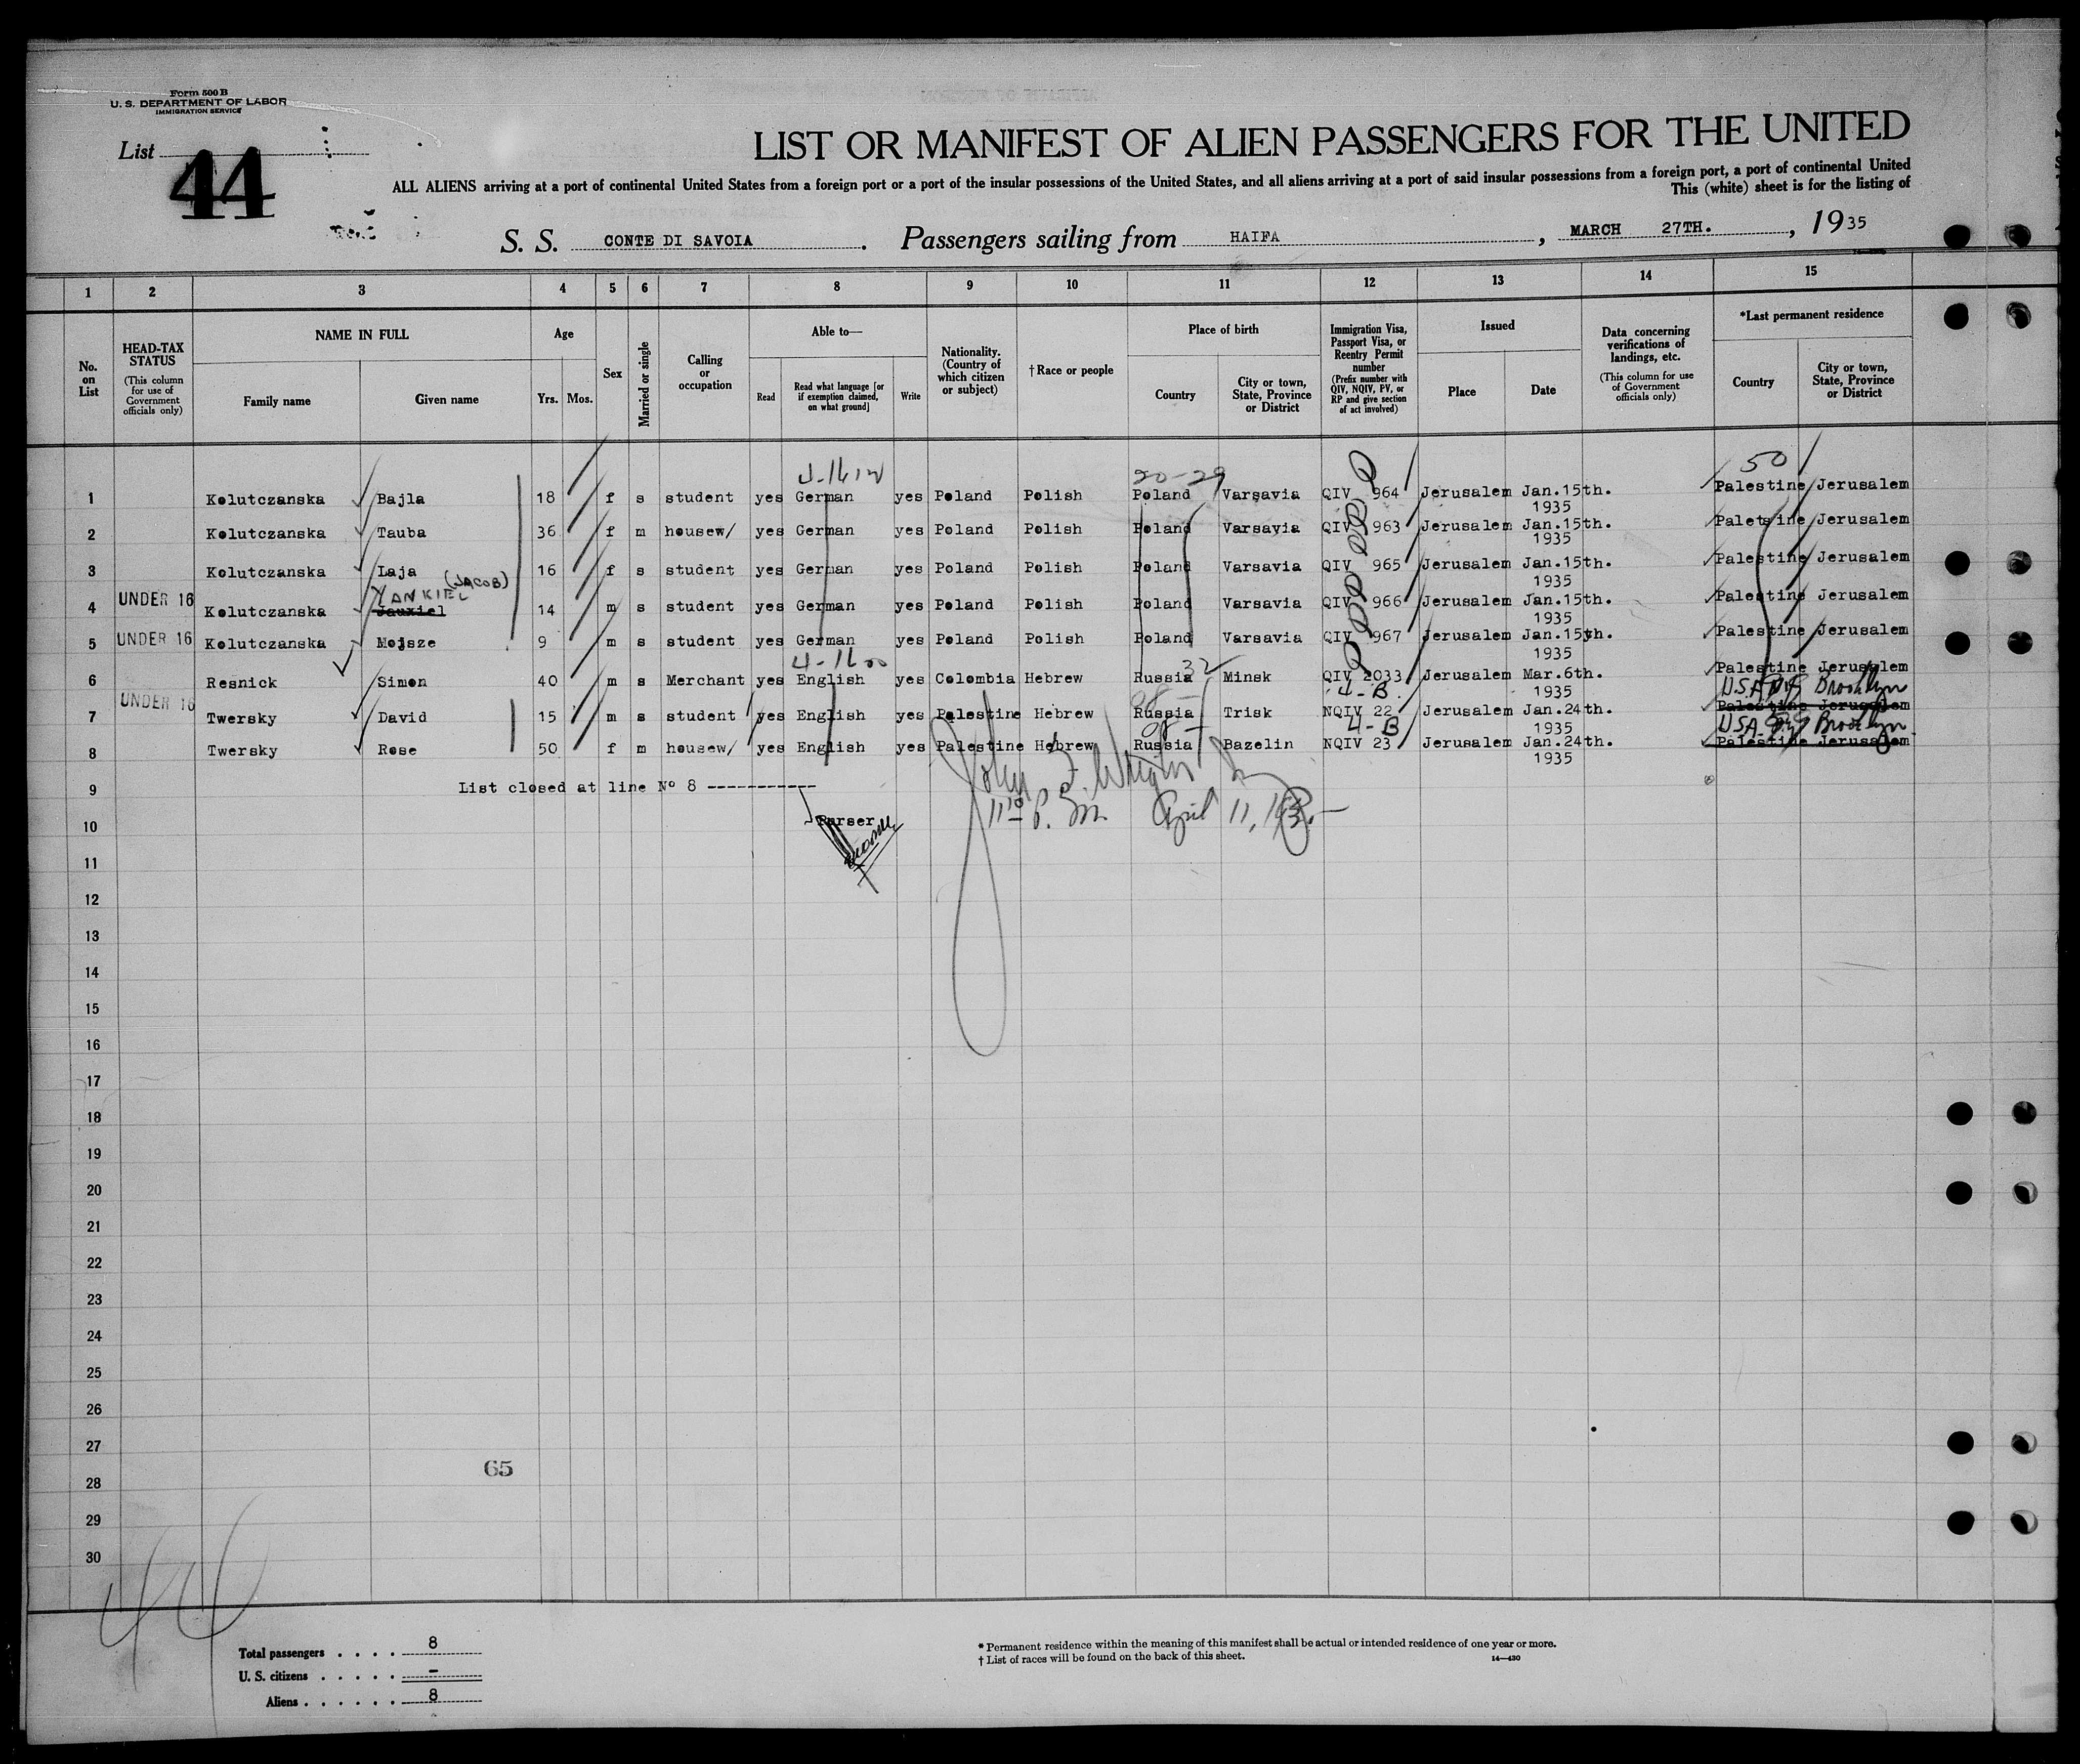 Form 500 B
U. S. DEPARTMENT OF LABOR
IMMIGRATION SERVICE
List 44
LIST OR MANIFEST OF ALIEN PASSENGERS FOR THE UNITED
ALL ALIENS arriving at a port of continental United States from a foreign port or a port of the insular possessions of the United States, and all aliens arriving at a port of said insular possessions from a foreign port, a port of continental United
This (white) sheet is for the listing of
S. S. CONTE DI SAVOIA. Passengers sailing from HAIFA, MARCH 27TH., 1935
1 2 3 4 5 6 7 8 9 10 11 12 13 14 15
No. on List
HEAD-TAX STATUS (This column for use of Government officials only)
NAME IN FULL Family name Given name
Age Yrs. Mos.
Sex
Married or single
Calling or occupation
Able to— Read Read what language [or if exemption claimed, on what ground] Write
Nationality. (Country of which citizen or subject)
† Race or people
Place of birth Country City or town, State, Province or District
Immigration Visa, Passport Visa, or Reentry Permit number (Prefix number with QIV, NQIV, PV, or RP and give section of act involved)
Issued Place Date
Data concerning verifications of landings, etc. (This column for use of Government officials only)
*Last permanent residence Country City or town, State, Province or District
20-29 50
1 Kolutczanska Bajla 18 f s student yes German yes Poland Polish Poland Varsavia QIV 964 Jerusalem Jan.15th. 1935 Palestine Jerusalem
2 Kolutczanska Tauba 36 f m housew/ yes German yes Poland Polish Poland Varsavia QIV 963 Jerusalem Jan.15th. 1935 Paletsine Jerusalem
3 Kolutczanska Laja 16 f s student yes German yes Poland Polish Poland Varsavia QIV 965 Jerusalem Jan.15th. 1935 Palestine Jerusalem
YANKIEL (JACOB)
4 UNDER 16 Kolutczanska Jauxiel 14 m s student yes German yes Poland Polish Poland Varsavia QIV 966 Jerusalem Jan.15th. 1935 Palestine Jerusalem
5 UNDER 16 Kolutczanska Mojsze 9 m s student yes German yes Poland Polish Poland Varsavia QIV 967 Jerusalem Jan.15yh. 1935 Palestine Jerusalem
32
6 Resnick Simon 40 m s Merchant yes English yes Colombia Hebrew Russia Minsk QIV 2033 Jerusalem Mar.6th. 1935 Palestine Jerusalem
4-B USA Brooklyn
7 UNDER 16 Twersky David 15 m s student yes English yes Palestine Hebrew Russia Trisk NQIV 22 Jerusalem Jan.24th. 1935 Palestine Jerusalem
4-B USA Brooklyn
8 Twersky Rose 50 f m housew/ yes English yes Palestine Hebrew Russia Bazelin NQIV 23 Jerusalem Jan.24th. 1935 Palestine Jerusalem
9 List closed at line Nº 8 -----------
10 Purser
P. M. April 11,
11
12
13
14
15
16
17
18
19
20
21
22
23
24
25
26
27
65
28
29
30
44
Total passengers . . . . 8
U. S. citizens . . . . . –
Aliens . . . . . . 8
* Permanent residence within the meaning of this manifest shall be actual or intended residence of one year or more.
† List of races will be found on the back of this sheet.
14—430